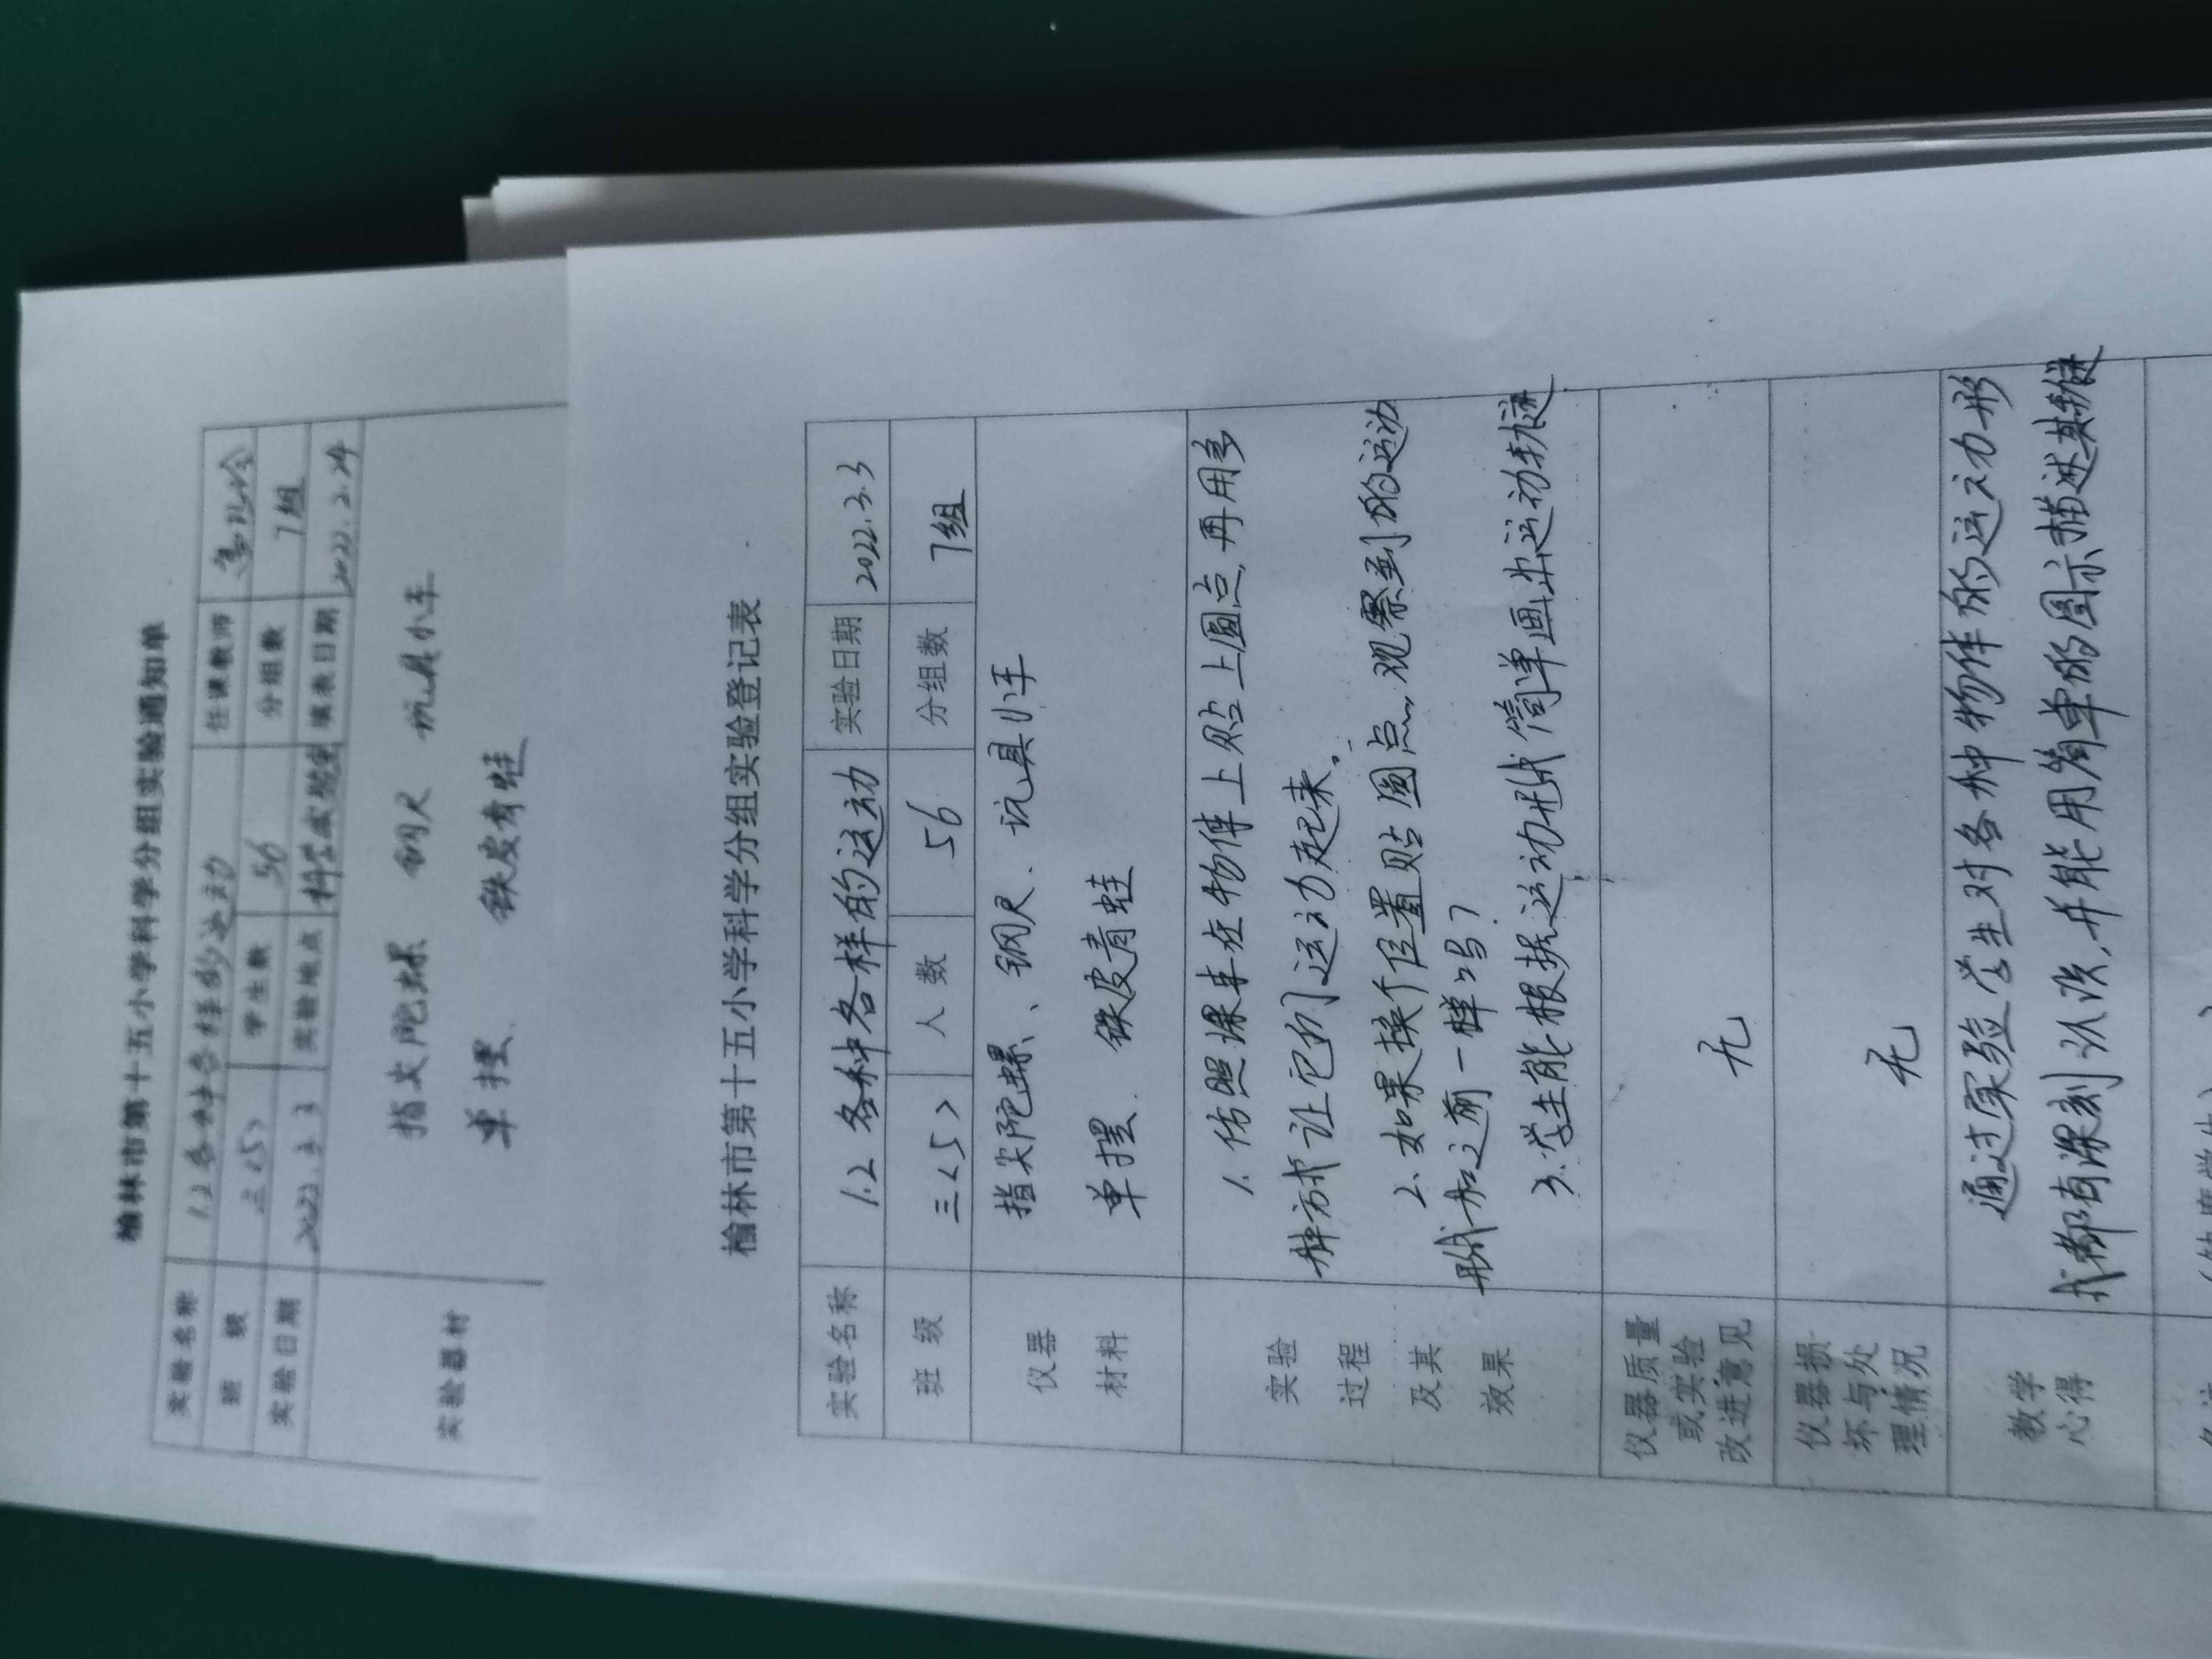 榆林市第十五小学科学分组实验通知单
实验名称 1.2各种各样的运动 任课教师
班 级 三<5> 学生数 56 分组数 7组
实验日期 2022.3.3 实验地点 科学实验室 填表日期 2022.2.24
实验器材
指尖陀螺 钢尺 玩具小车
单摆 铁皮青蛙
榆林市第十五小学科学分组实验登记表
实验名称 1.2各种各样的运动 实验日期 2022.3.3
班 级 三<5> 人 数 56 分组数 7组
仪器
材料
指尖陀螺、钢尺、玩具小车
单摆 铁皮青蛙
实验
过程
及其
效果
1.仿照课本在物体上贴上圆点,再用多
种方式让它们运动起来。
2.如果换个位置贴圆点,观察到的运动
形式和之前一样吗?
3.学生能根据运动形式简单画出运动轨迹
仪器质量
或实验
改进意见
无
仪器损
坏与处
理情况
无
教学
心得
通过实验学生对各种物体的运动形
式都有深刻认识,并能用简单的图示描述其轨迹